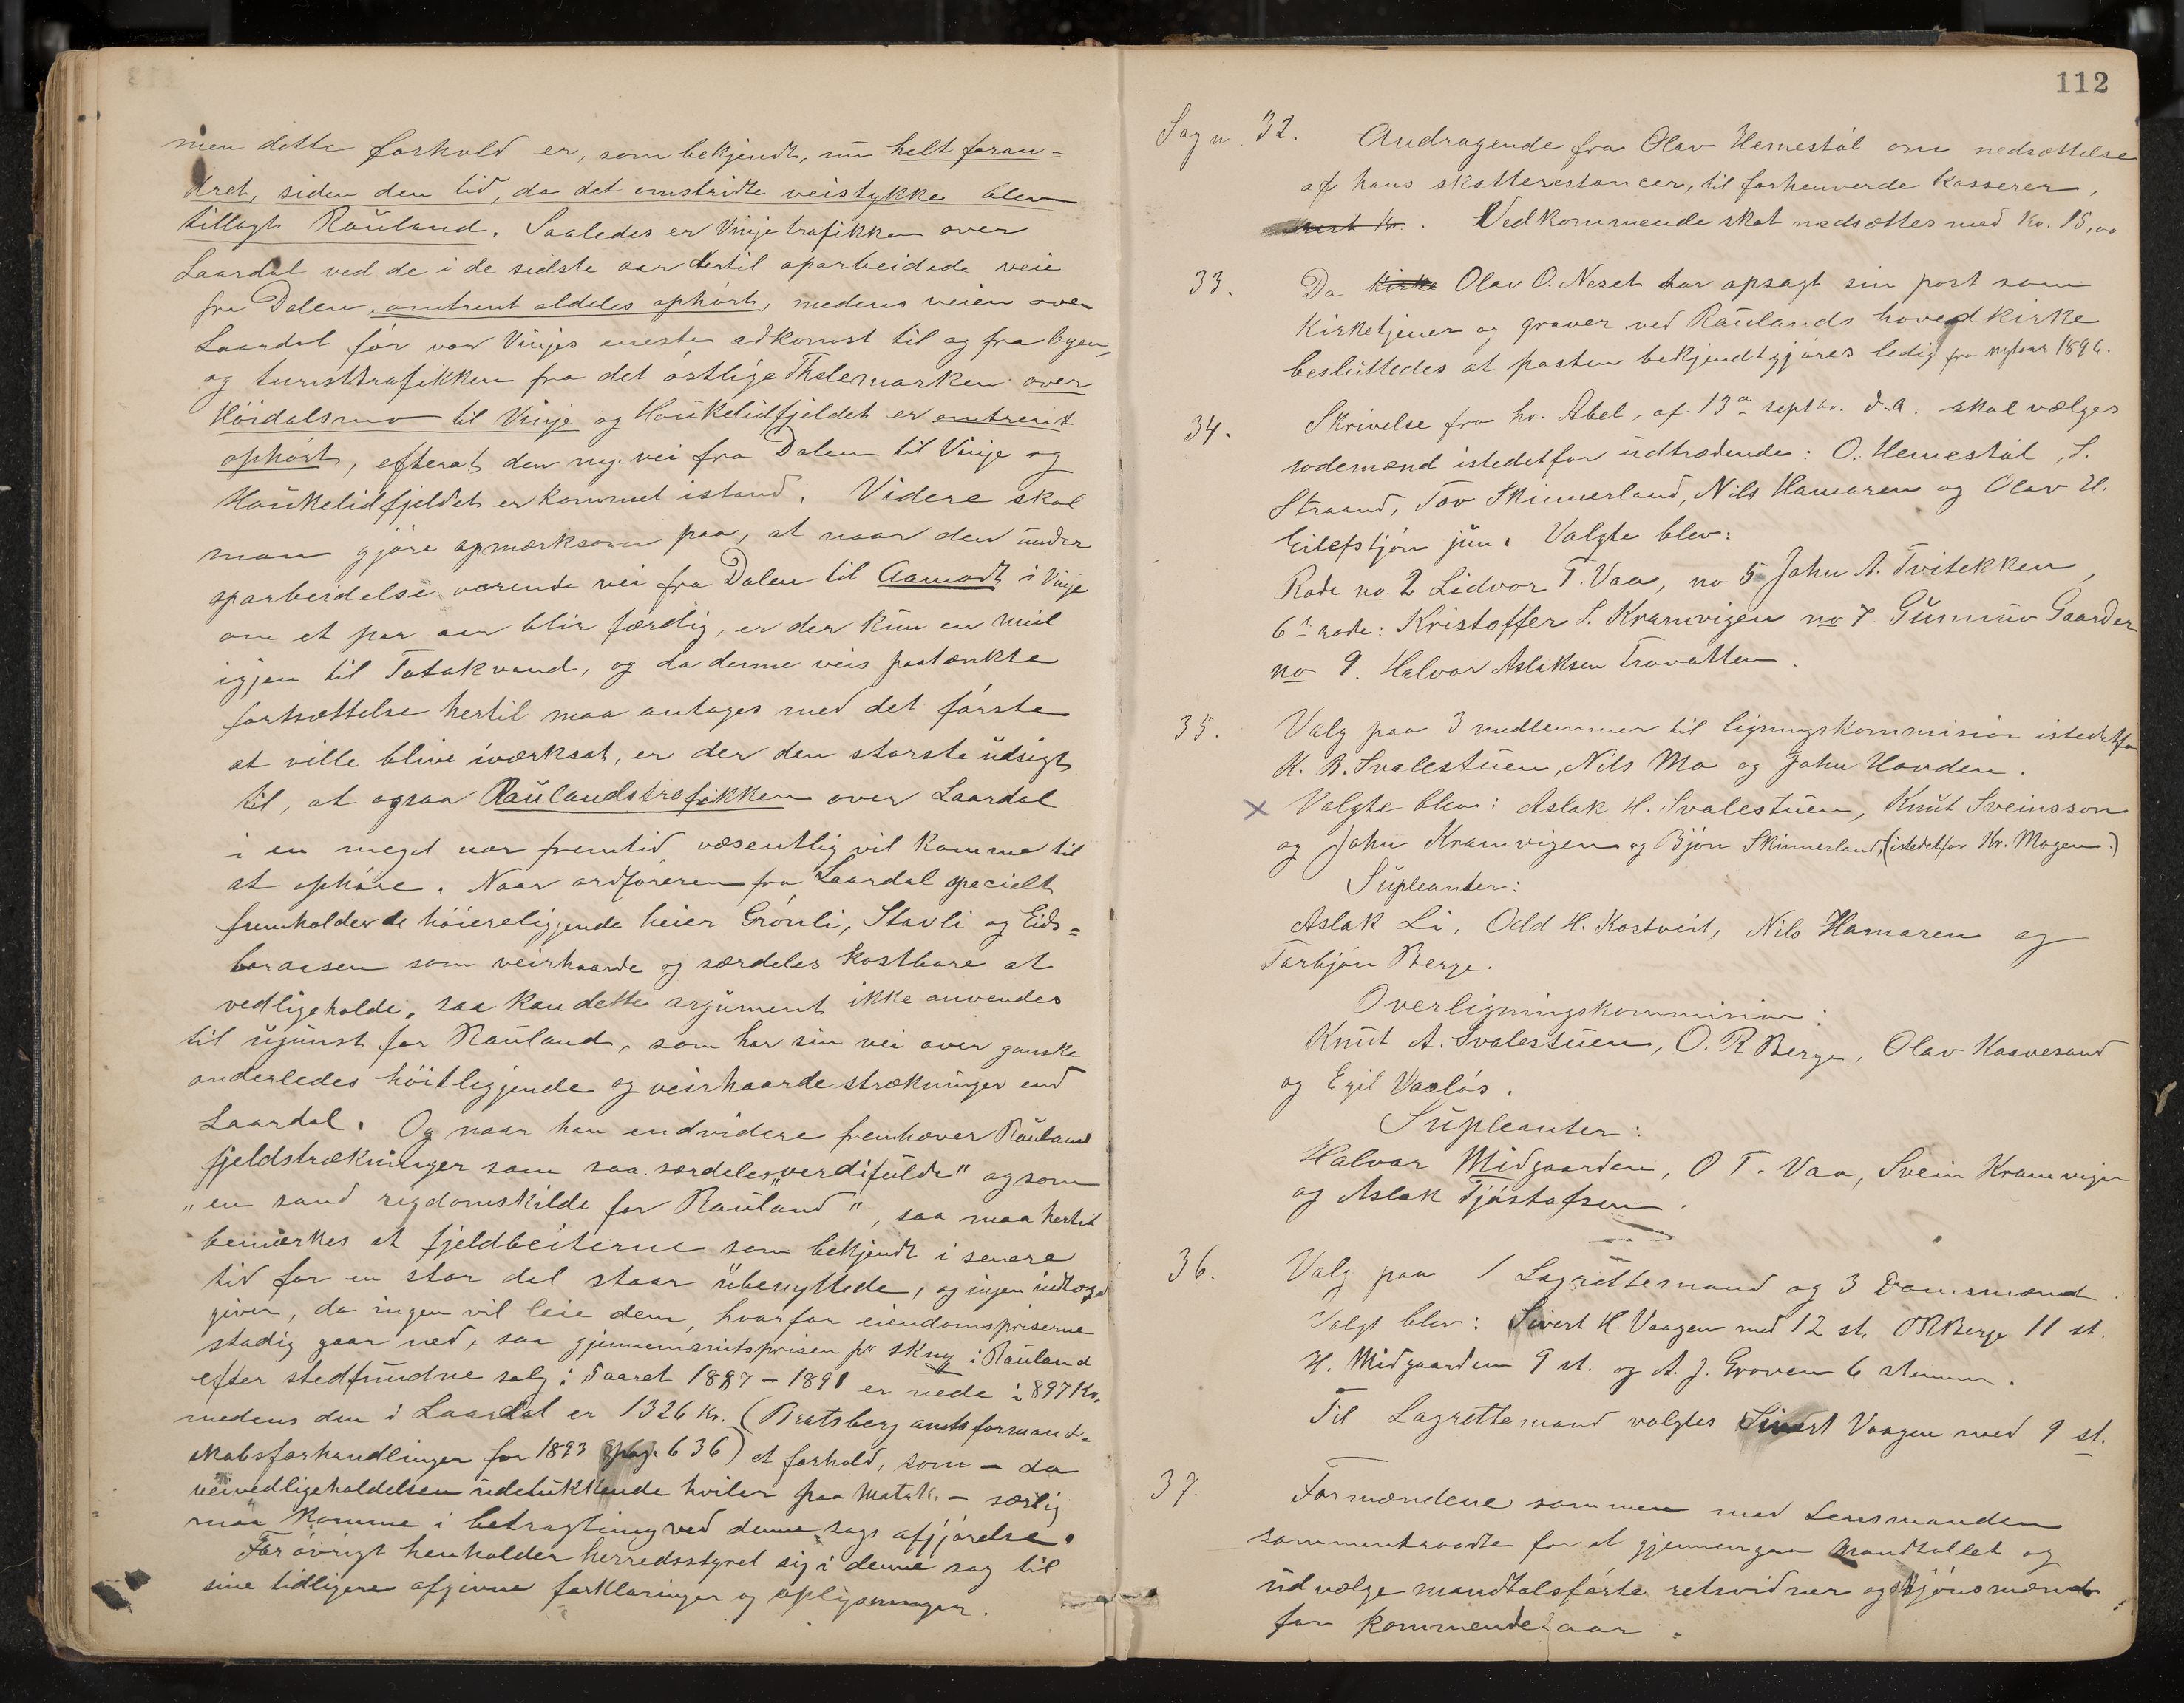 men dette forhold er, som bekjendt, nu helt foran=
dret, siden den tid, da det omstridte veistykke blev
tillagt Rauland. Saaledes er Vinjetrafikken over
Laardal ved de i de sidste aar dertil oparbeidede veie
fra Dalen omtrent aldeles ophørt, medens veien over
Laardal før var Vinjes eneste adkomst til og fra byen,
og turisttrafikken fra det østlige Thelemarken over
Høidalsmo til Vinje og Haukelidfjeldet er omtrent
ophørt, efterat den nye vei fra Dalen til Vinje og
Haukelidfjeldet er kommet istand. Videre skal
man gjøre opmærksom paa, at naar den under
oparbeidelse værende vei fra Dalen til Aamodt i Vinje
om et par aar blir færdig, er der kun en miil
igjen til Totakvand, og da denne veis paatænkte
fortsættelse hertil maa antages med det første
at ville blive iværksat, er der den største udsigt
til, at ogsaa Raulandstrafikken over Laardal
i en meget nær fremtid væsentlig vil komme til
at ophøre. Naar ordføreren fra Laardal specielt
fremholder de høiereliggende heier Grønli, Stavli og Eids=
boraasen som veirhaarde og særdeles kostbare at
vedligeholde, saa kan dette argument ikke anvendes
til ugunst for Rauland, som har sin vei over ganske
anderledes høitliggende og veirhaarde strækninger end
Laardal. Og naar han endvidere fremhæver Raulands
fjeldstrækninger som saa særdeles „verdifulde" og som
„en sand rigdomskilde for Rauland", saa maa hertil
bemærkes at fjeldbeiterne som bekjendt i senere
tid for en stor del staar übenyttede, og ingen indtægt
giver, da ingen vil leie dem, hvorfor eiendomspriserne
stadig gaar ned, saa gjennemsnitsprisen pr skm i Rauland
efter stedfundne salg i 5aaret 1887-1891 er nede i 897 Kr.
medens den i Laardal er 1326 Kr. (Bratsberg amtsformand-
skabsforhandlinger for 1893 pag. 636) et forhold, som - da
veivedligeholdelsen udelukkende hviler paa Matsk. - særlig
maa komme i betragtning ved denne sags afgjørelse.
Forøvrigt henholder herredsstyret sig i denne sag til
sine tidligere afgivne forklaringer og oplysninger.
112
Sag n. 32. Andragende fra Olav Hemestøl om nedsættelse
af hans skatterestancer, til forhenværende Kasserer,
Vedkommende skat nedsættes med kr. 15,00
33. Da Kirke Olav O. Neset har opsagt sin post som
Kirketjener og graver ved Raulands hovedkirke
besluttedes at posten bekjendtgjøres ledig fra nytaar 1896.
34. Skrivelse fra hr. Abel, af 13de septbr. d.a. skal vælges
rodemænd istedetfor udtrædende: O. Hemestøl, S.
Straand, Tov Skinnerland, Nils Hamaren og Olav H.
Eilefstjøn jun. Valgte blev:
Rode no. 2 Lidvor T. Vaa, no 5 John A. Tvitekken,
6te rode: Kristoffer S. Kramvigen no 7. Gunnuv Gaarden
no 9. Halvor Aslaksen Trovatten.
35. Valg paa 3 medlemmer til ligningskommision istedetfor
K. B. Svalestuen, Nils Mo og John Hovden.
x Valgte blev: Aslak H. Svalestuen, Knut Sveinsson
og John Kramvigen og Bjøn Skinnerland, (istedetfor Kr. Mogen.)
Supleanter:
Aslak Li, Odd H. Kostveit, Nils Hamaren og
Torbjøn Berge.
Overligningskommision:
Knut A. Svalestuen, O. R Berge, Olav Kaavesand
og Egil Vasløs.
Supleanter:
Halvor Midgaarden, O T. Vaa, Svein Kramvigen
og Aslak Tjøstofsen.
36. Valg paa 1 Lagrettemand og 3 Domsmænd.
Valgt blev: Sivert H. Vaagen med 12 st. O R Berge 11 st.
H. Midgaarden 9 st. og A. J. Groven 6 stemmer.
Til Lagrettemand valgtes Sivert Vaagen med 9 st.
37. Formændene sammen med Lensmanden
sammentraadte for at gjennemgaa Mandtallet og
udvælge mandtalsførte retsvidner og skjønsmænd
for kommende aar.